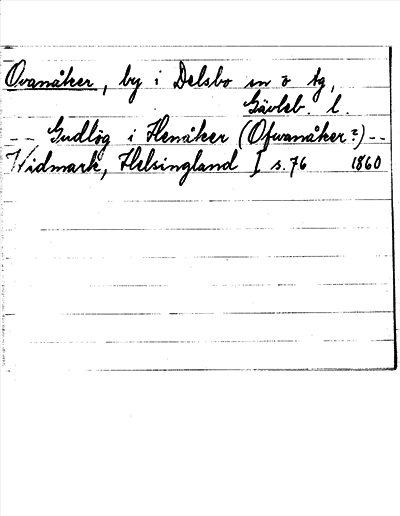 Ovanåker, by i Delsbo sn o tg,
Gävleb. l.
-- Gudlög i Henåker (Ofvanåker?) --
Widmark, Helsingland I s. 76 1860